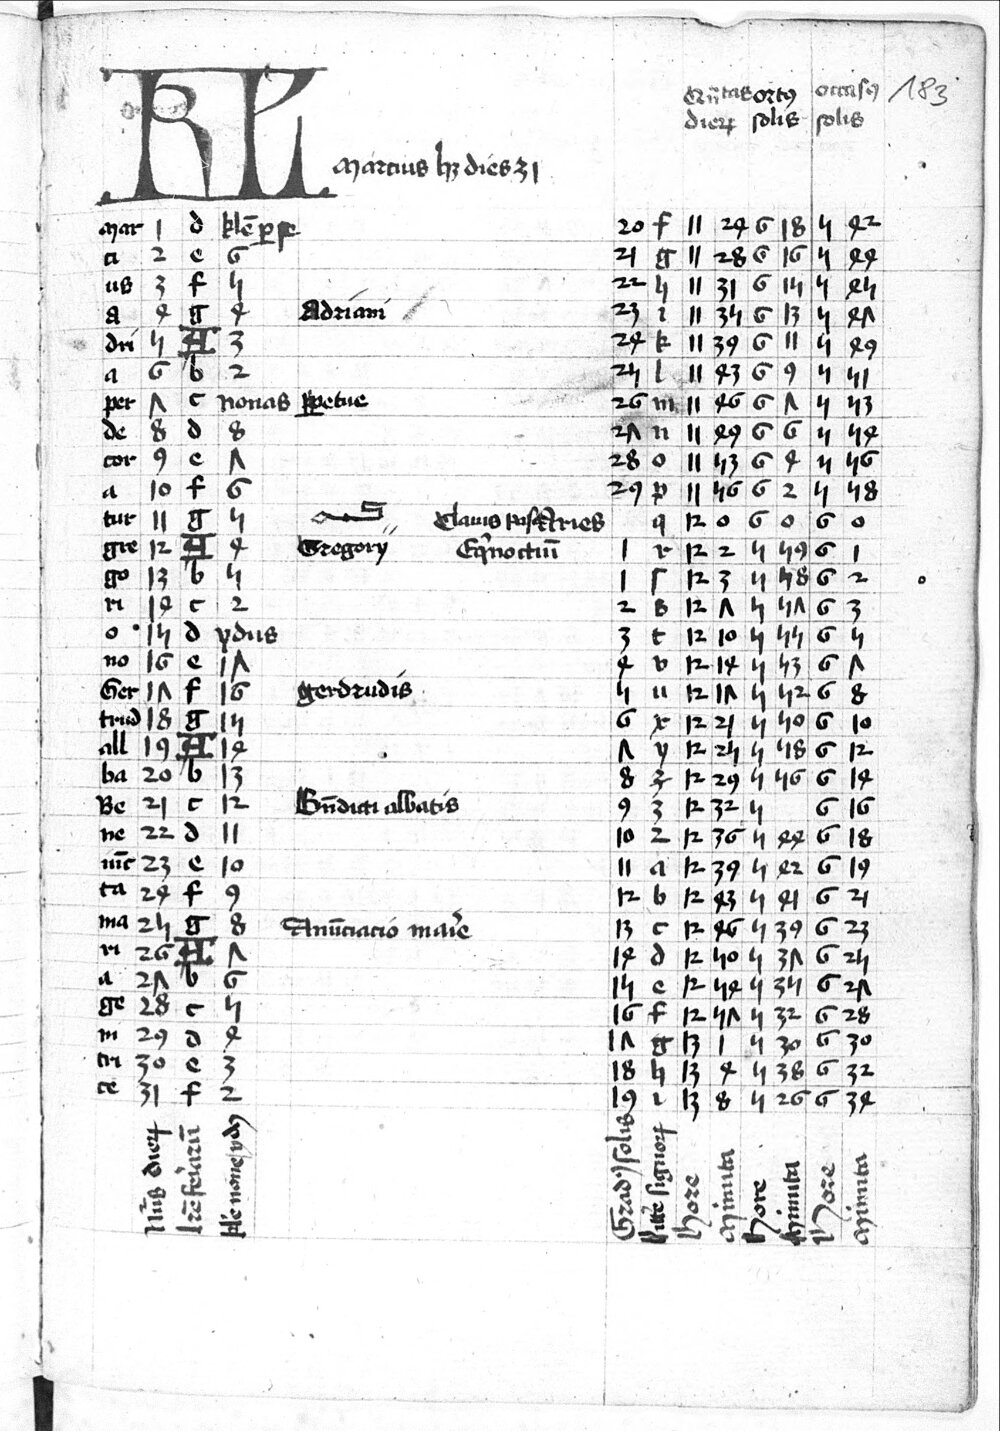 KL
Martius hꝫ dies 31
solis solis
183
mar 1 d kłe 20 f 11 24 6 18 5 42
ci 2 e 6 21 g 11 28 6 16 5 44
us 3 f 5 22 h 11 31 6 15 5 45
a 4 g 4 Adriani 23 i 11 35 6 13 5 47
dri 5 A 3 24 k 11 39 6 11 5 49
a 6 b 2 25 l 11 43 6 9 5 51
per 7 c nonas ꝑpetue 26 m 11 46 6 7 5 53
de 8 d 8 27 n 11 49 6 6 5 54
cor 9 e 7 28 o 11 53 6 4 5 56
a 10 f 6 29 p 11 56 6 2 5 58
tur 11 g 5 Clauis q 12 0 6 0 6 0
gre 12 A 4 Gregorij Eqͥnoctiū 1 r 12 2 5 59 6 1
go 13 b 5 1 ſ 12 3 5 58 6 2
ri 14 c 2 2 s 12 7 5 57 6 3
o 15 d ydus 3 t 12 10 5 55 6 5
no 16 e 17 4 v 12 14 5 53 6 7
Ger 17 f 16 gerdrudis 5 u 12 17 5 52 6 8
trud 18 g 15 6 x 12 21 5 50 6 10
all 19 A 14 7 y 12 25 5 48 6 12
ba 20 b 13 8 z 12 29 5 46 6 14
Be 21 c 12 Bn̄dicti abbatis 9 3 12 32 5 6 16
ne 22 d 11 10 2 12 36 5 44 6 18
iūc 23 e 10 11 a 12 39 5 42 6 19
ta 24 f 9 12 b 12 43 5 41 6 21
ma 25 g 8 Anūciacio marie 13 c 12 46 5 39 6 23
ri 26 A 7 14 d 12 50 5 37 6 25
a 27 b 6 15 e 12 54 5 35 6 27
ge 28 c 5 16 f 12 57 5 32 6 28
ni 29 d 4 17 g 13 1 5 30 6 30
tri 30 e 3 18 h 13 4 5 38 6 32
ce 31 f 2 19 i 13 8 5 26 6 34
Nūs dieꝝ
lr̄e feriarū
kłe none ydꝰ
Gradꝰ solis
lītre signoꝝ
hore
minuta
hore
minuta
hore
minuta